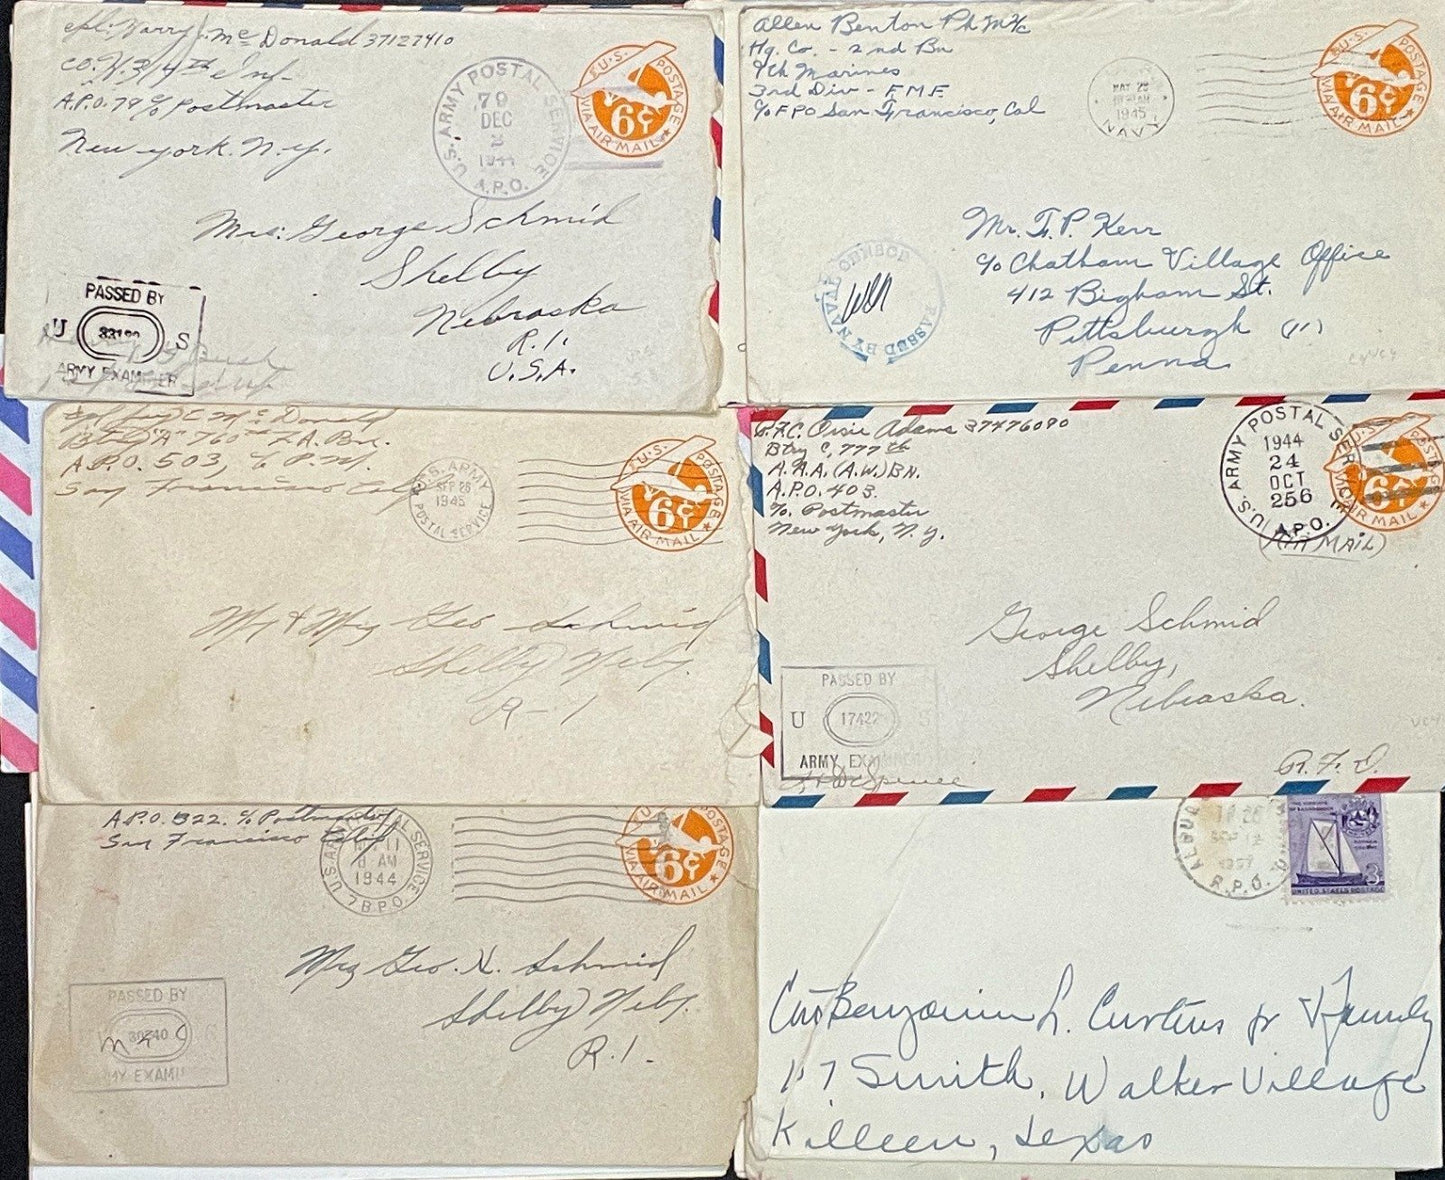 Harry McDonald 37127410
Co. K. 314th Inf
A.P.O. 79 c/o Postmaster
New York. N.Y.
U.S. ARMY POSTAL SERVICE
79
DEC
2
1944
A.P.O.
U.S. POSTAGE
6¢
VIA AIR MAIL
Mrs. George Schmid
Shelby
Nebraska
R.1.
U.S.A.
PASSED BY
U S
ARMY EXAMINER
Allen Benton PhM 2/c
Hq. Co. - 2nd Bn
9th Marines
3rd Div - FMF
c/o FPO San Francisco, Cal
MAY 28
1945
NAVY
U.S. POSTAGE
6¢
VIA AIR MAIL
PASSED BY NAVAL CENSOR
Mr. T. P. Kerr
c/o Chatham Village Office
412 Bigham St.
Pittsburgh (11)
Penna
E. McDonald
Btry "A" 760th F.A. Bn.
A.P.O. 503, c/o P.M.
San Francisco Calif
U.S. ARMY
SEP 26
1945
POSTAL SERVICE
U.S. POSTAGE
6¢
VIA AIR MAIL
Mr & Mrs Geo Schmid
Shelby Nebr.
R-1
P.F.C. Orsie Adams 37476090
Btry C, 777th
A.A.A. (A.W.) BN.
A.P.O. 403.
c/o Postmaster
New York, N.Y.
U.S. ARMY POSTAL SERVICE
1944
24
OCT
256
A.P.O.
U.S. POSTAGE
6¢
VIA AIR MAIL
(AIR MAIL)
George Schmid
Shelby,
Nebraska.
R.F.D.
PASSED BY
U S
17422
ARMY EXAMINER
A.P.O. 322 c/o Postmaster
San Francisco Calif
U.S. ARMY POSTAL SERVICE
11
8 AM
1944
7 B.P.O.
U.S. POSTAGE
6¢
VIA AIR MAIL
Mrs Geo. H. Schmid
Shelby Nebr.
R.1-
PASSED BY
ARMY EXAMI
ALBUQ
SEP 12
1957
R.P.O.
3¢
UNITED STATES POSTAGE
Benjamin L. Curtius Jr & Family
117 Smith, Walker Village
Killeen, Texas